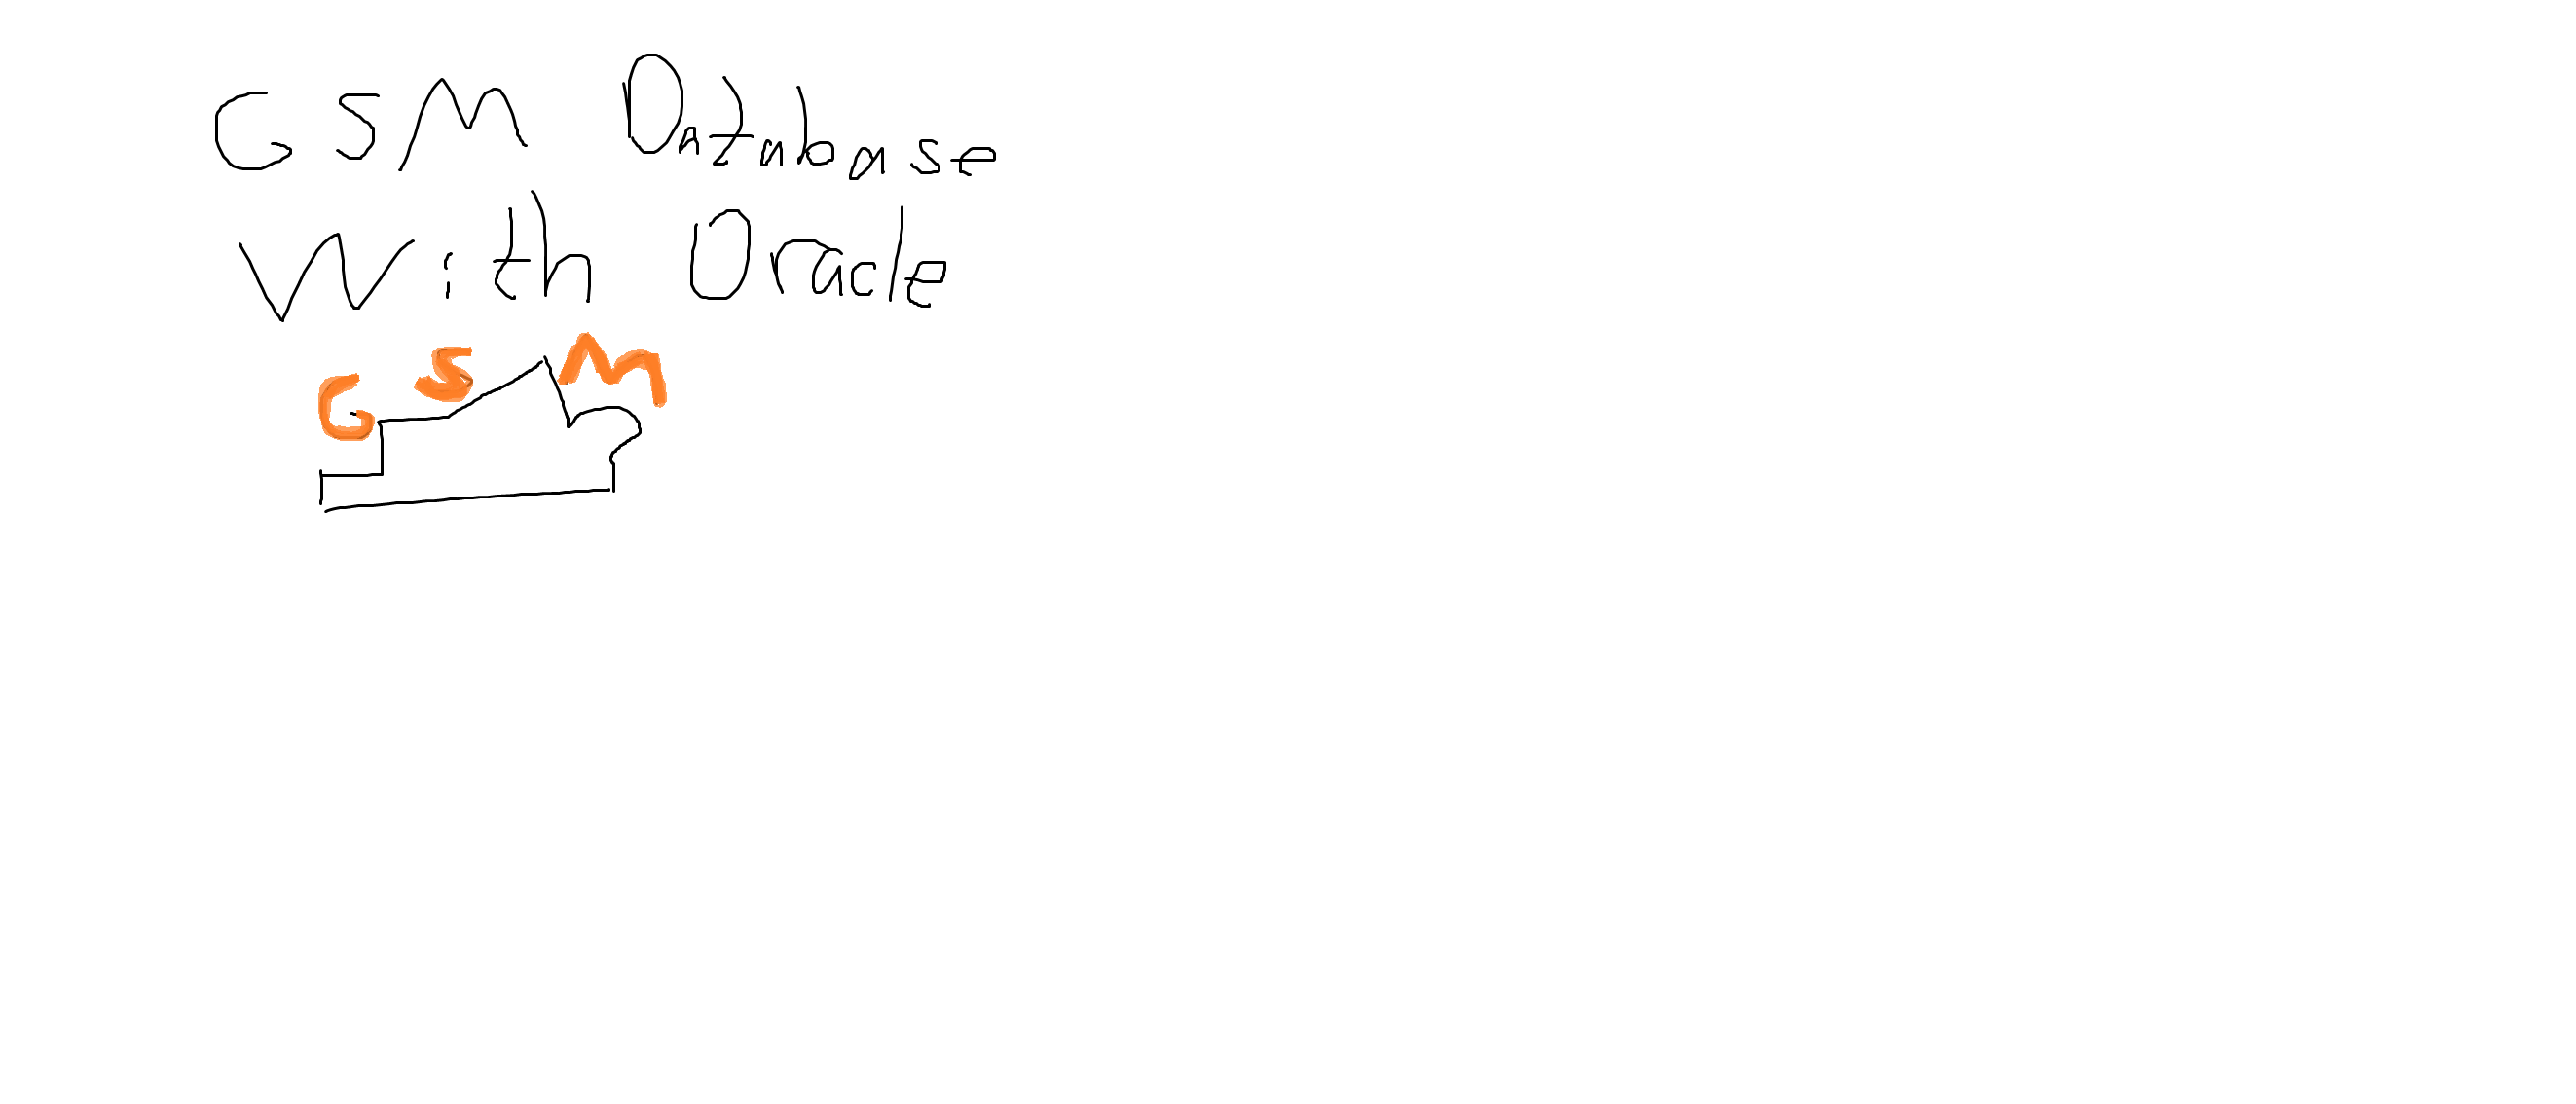 GSM Database
With Oracle
GSM